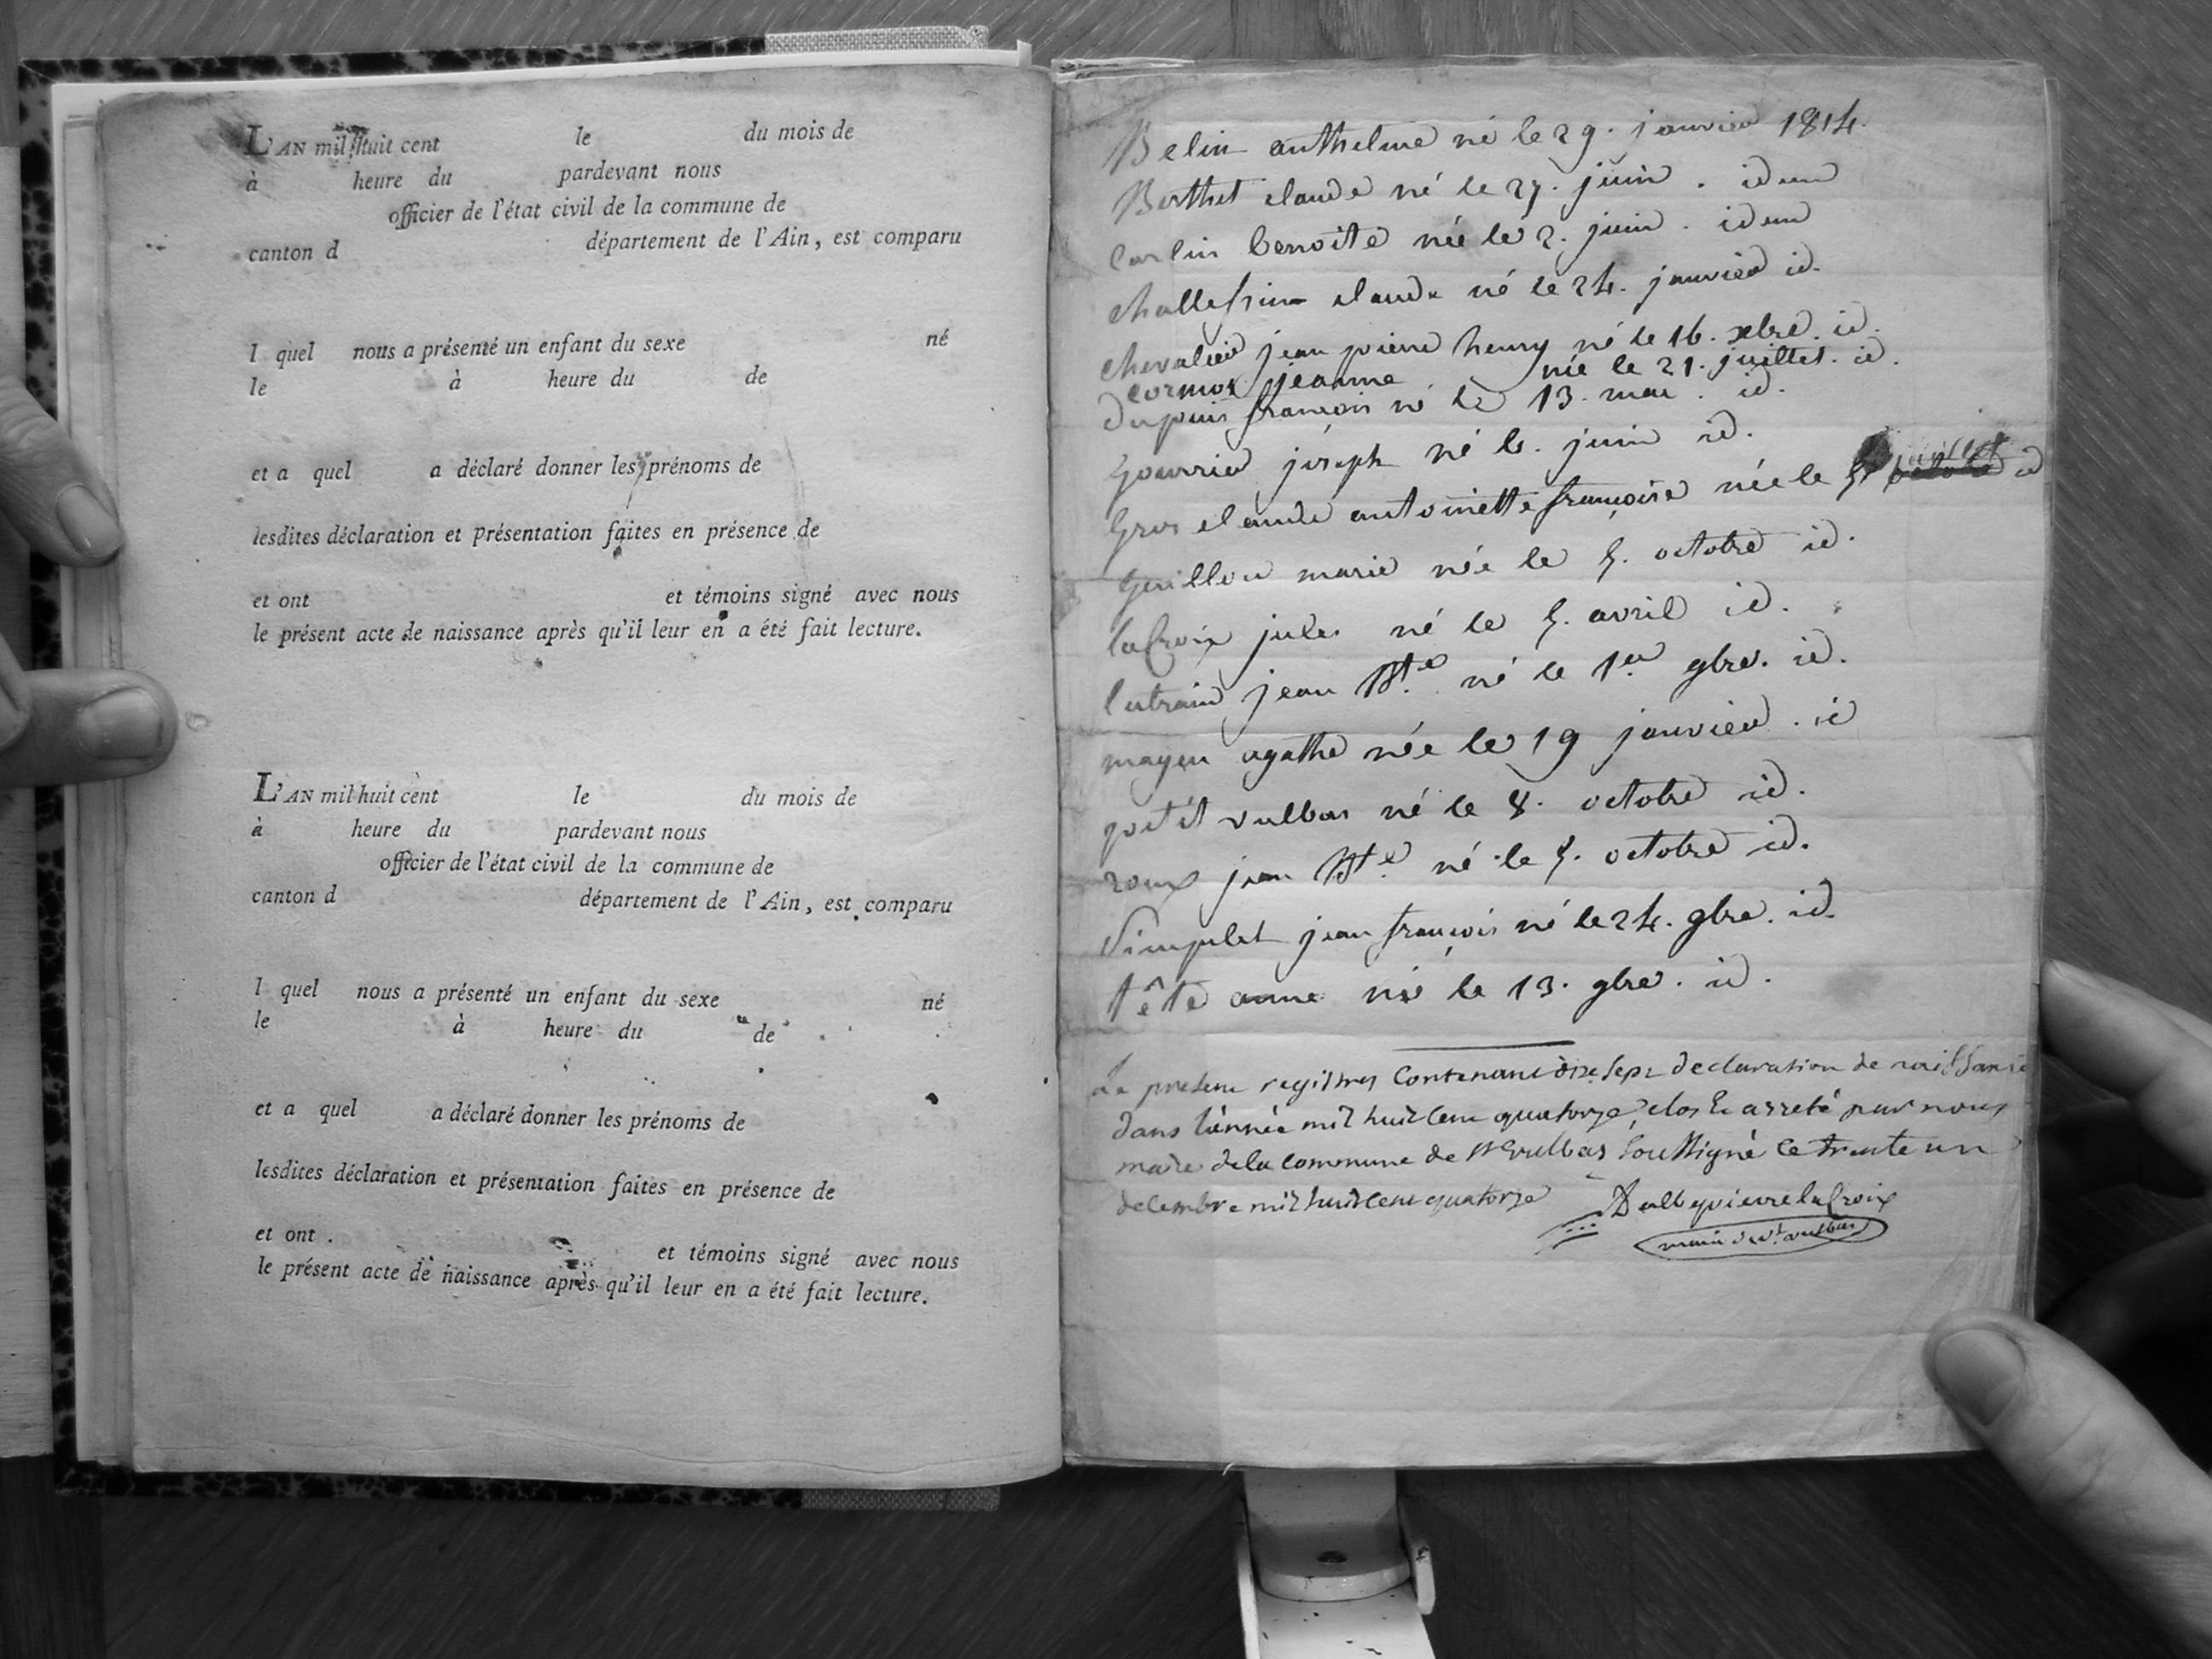 L'AN mil huit cent le du mois de
à heure du pardevant nous
officier de l'état civil de la commune de
canton d département de l'Ain, est comparu
l quel nous a présenté un enfant du sexe né
le à heure du de
et a quel a déclaré donner les prénoms de
lesdites déclaration et présentation faites en présence de
et ont et témoins signé avec nous
le présent acte de naissance après qu'il leur en a été fait lecture.
L'AN mil huit cent le du mois de
à heure du pardevant nous
officier de l'état civil de la commune de
canton d département de l'Ain, est comparu
l quel nous a présenté un enfant du sexe né
le à heure du de
et a quel a déclaré donner les prénoms de
lesdites déclaration et présentation faites en présence de
et ont et témoins signé avec nous
le présent acte de naissance après qu'il leur en a été fait lecture.
Belin anthelme né le 29. janvier 1814.
Berthet claude né le 27. juin. idem
Carlin Benoite née le 2. juin. idem
claude né le 24. janvier id.
chevalier jean pierre henry né le 16. xbre. id.
cormox jeanne née le 21. juillet. id.
Dupuis françois né le 13. mai. id.
joseph né le. juin id.
Gros claude antoinette françoise née le juillet id
Guillou marie née le 5. octobre id.
lacroix jules né le 5. avril id.
jean Bte. né le 1er 9bre. id.
mayeu agathe née le 19 janvier. id
petit vulbas né le 8. octobre id.
roux jean Bte. né le 5. octobre id.
Simpulet jean françois né le 24. 9bre. id.
tête anne née le 13. 9bre. id.
Le present registres Contenant dixsept declaration de naissance
dans l'année mil huit cent quatorze, clos et arreté par nous
maire de la commune de St Vulbas soussigné ce trente un
decembre mil huit cent quatorze Dalbepierre lacroix
maire de st. vulbas